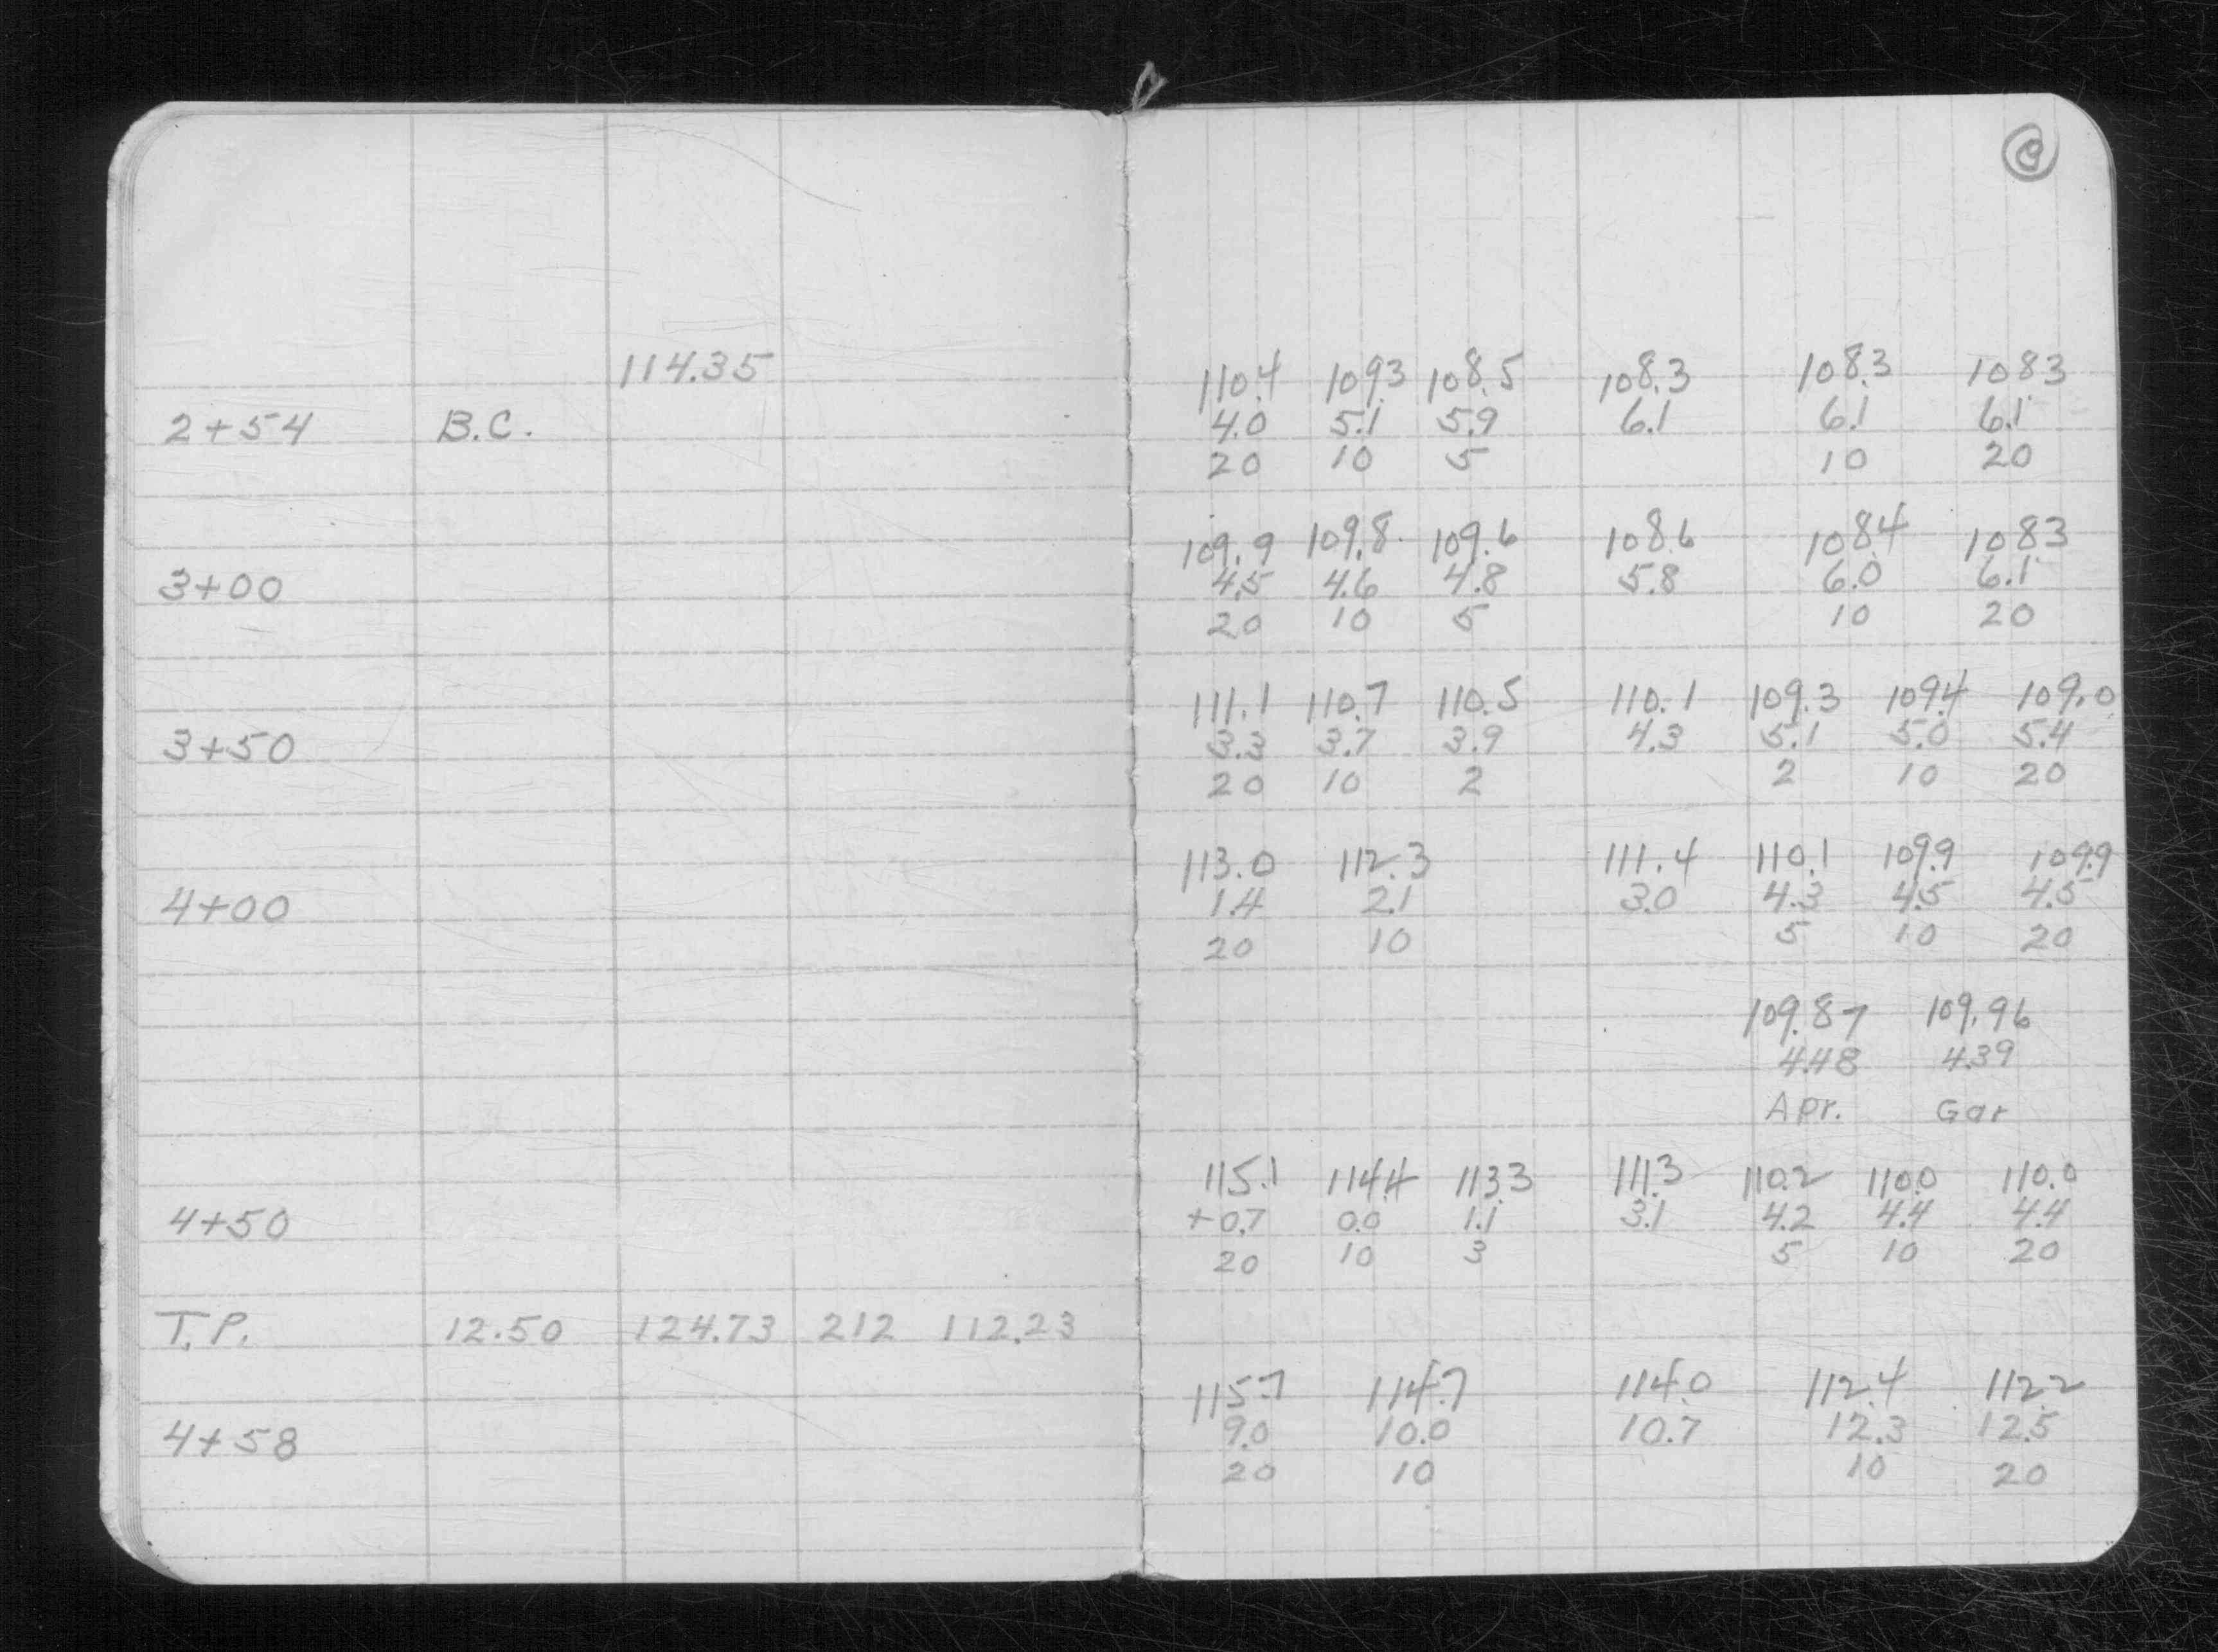 114.35 110.4 109.3 108.5 108.3 108.3 108.3
2+54 B.C. 4.0 5.1 5.9 6.1 6.1 6.1
20 10 5 10 20
109.9 109.8 109.6 108.6 108.4 108.3
3+00 4.5 4.6 4.8 5.8 6.0 6.1
20 10 5 10 20
111.1 110.7 110.5 110.1 109.3 109.4 109.0
3+50 3.3 3.7 3.9 4.3 5.1 5.0 5.4
20 10 2 2 10 20
113.0 112.3 111.4 110.1 109.9 109.9
4+00 1.4 2.1 3.0 4.3 4.5 4.5
20 10 5 10 20
109.87 109.96
4.48 4.39
Apr. Gar
115.1 114.4 113.3 111.3 110.2 110.0 110.0
4+50 +0.7 0.0 1.1 3.1 4.2 4.4 4.4
20 10 3 5 10 20
T.P. 12.50 124.73 212 112.23
115.7 114.7 114.0 112.4 112.2
4+58 9.0 10.0 10.7 12.3 12.5
20 10 10 20